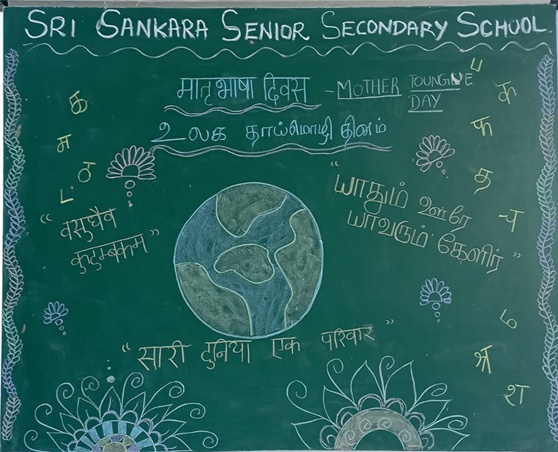 SRI SANKARA SENIOR SECONDARY SCHOOL
मातृभाषा दिवस - MOTHER TOUNGUE DAY
உலக தாய்மொழி தினம்
"वसुधैव
कुटुम्बकम"
"யாதும் ஊரே
யாவரும் கேளிர்"
"सारी दुनिया एक परिवार"
க
ம
ठ
ட
प
क
फ
த
ச
ம
श